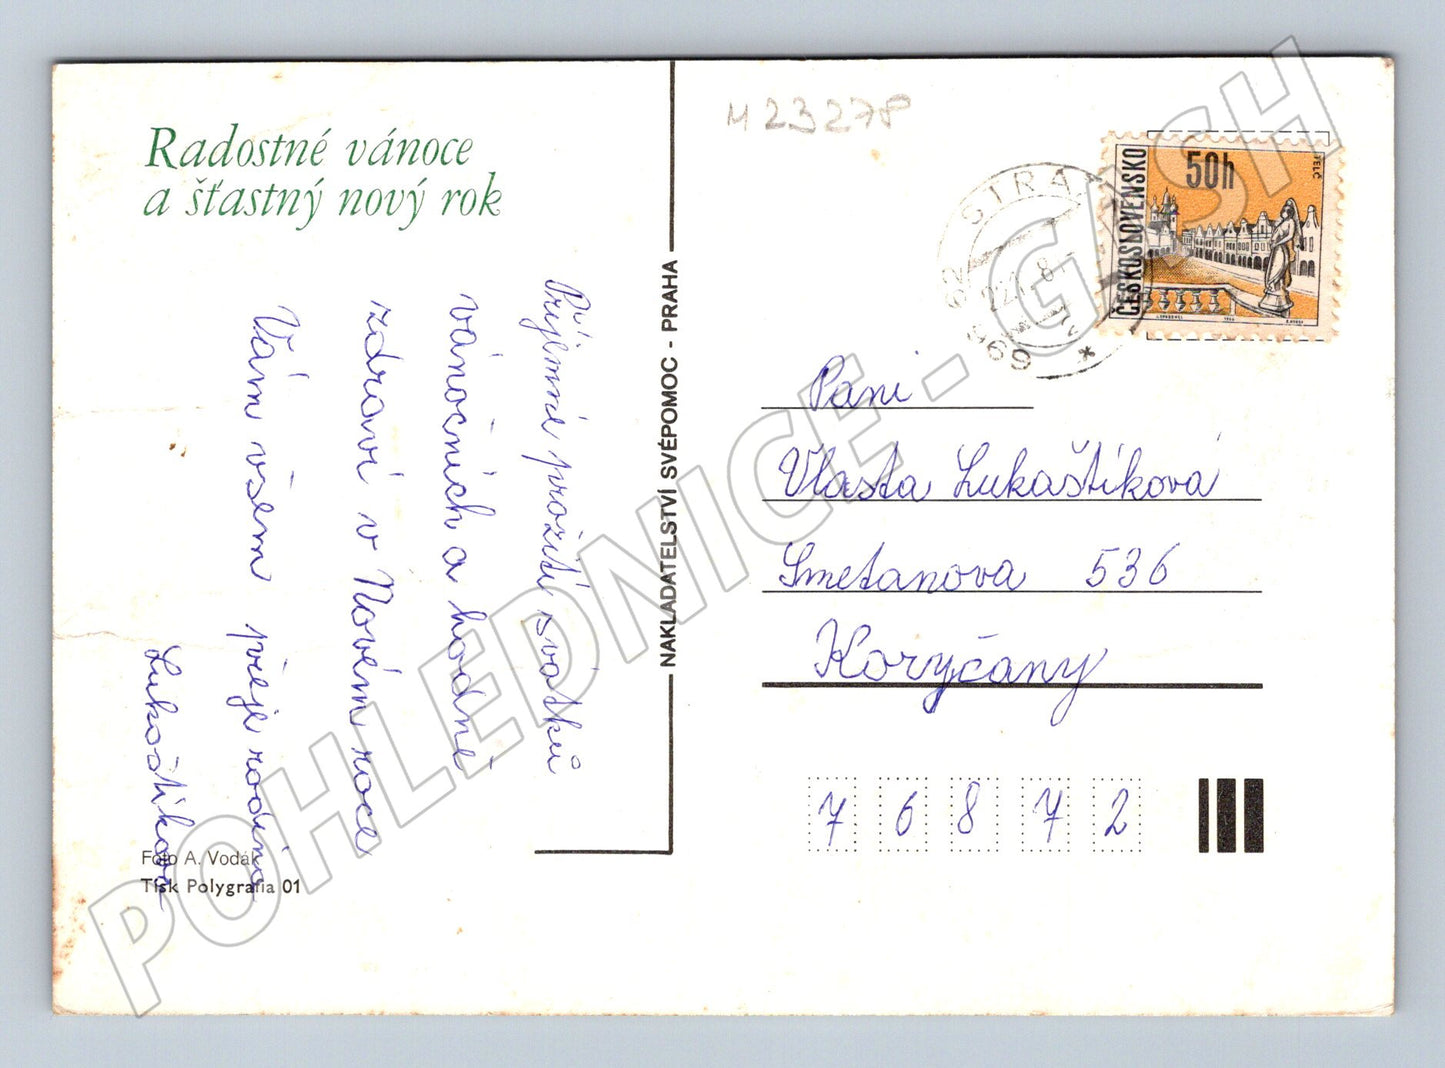 Radostné vánoce
a šťastný nový rok
M 23278
Příjemné prožití svátků
vánočních a hodně
zdraví v Novém roce
Vám všem přeje rodina
Lukaštíkova
Foto A. Vodák
Tisk Polygrafia 01
NAKLADATELSTVÍ SVÉPOMOC - PRAHA
ČESKOSLOVENSKO
50h
TELČ
1966
696 62 STRÁ
22.
8
Paní
Vlasta Lukaštíková
Smetanova 536
Koryčany
768 72
POHLEDNICE - GASH